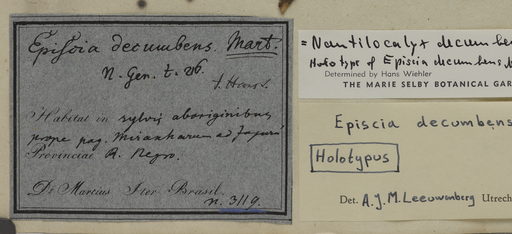 Episcia decumbens. Mart.
N. Gen. t. 216.
Habitat in sylvis aboriginibus
prope pag. Miranharum ad Japurá
Provinciae R. Negro.
Dr Martius Iter Brasil.
n. 3119.
= Nautilocalyx decumbe
Holotype of Episcia decumbens
Determined by Hans Wiehler
THE MARIE SELBY BOTANICAL GAR
Episcia decumbens
Holotypus
Det. A.J.M. Leeuwenberg Utrech